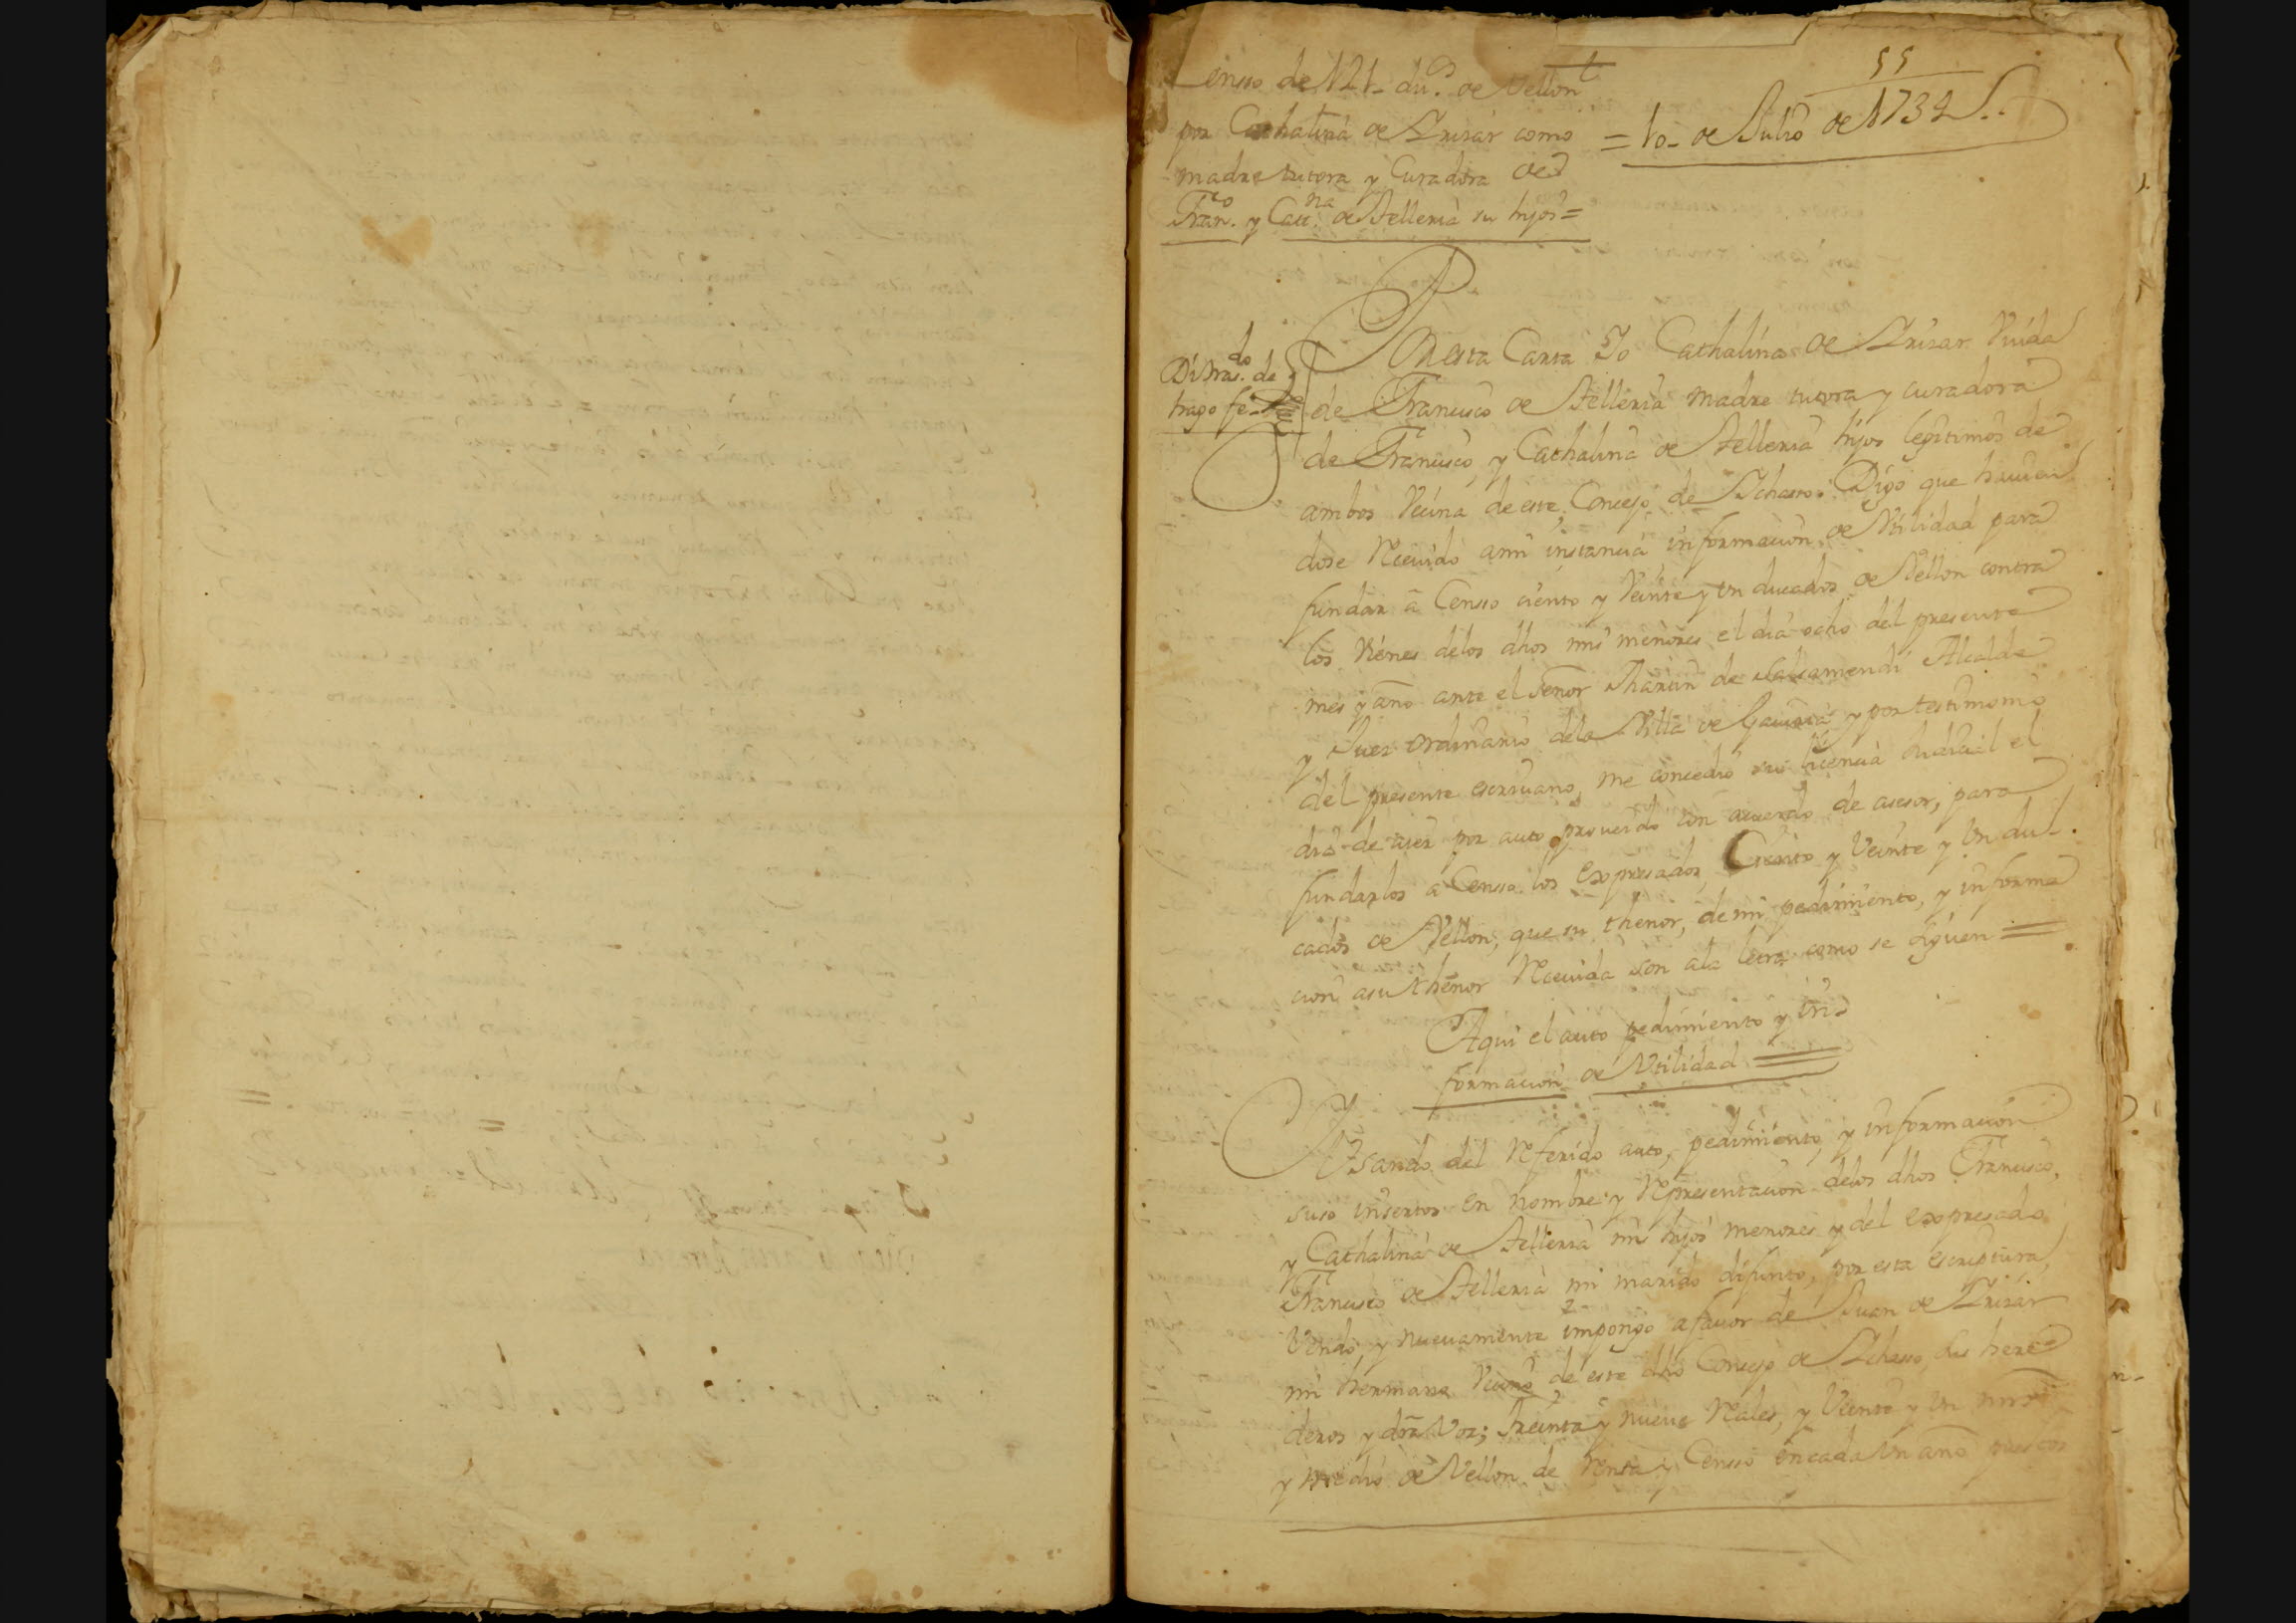 55
Censso de 121 du.s de Vellon
por Cathalina de Irizar como
madre tutora y Curadora de
Fran.co y Cat.na de Telleria su hijos =
= 10 de Julio de 1734
Di tras.do de
hago fe
Por esta Carta Yo Cathalina de Irizar Viuda
de Francisco de Telleria madre tutora y curadora
de Francisco, y Cathalina de Telleria hijos legitimos de
ambos Vecina de este Concejo de Ichasso: Digo que hauien
dose Receuido ami instancia informacion de Vtilidad para
fundar a Censso ciento y Veinte y Un ducados de Vellon contra
los Vienes delos dhos mis menores el dia ocho del presente
mes y año ante el Señor Martin de Salsamendi Alcalde
y Juez ordinario dela Villa de Gauiria y por testimonio
del presente escriuano, me concedio su licencia Judicial el
dia de ayer por auto proueido con acuerdo de asesor, para
fundarlos a Censso los expresados Ciento y Veinte y Un du
cados de Vellon, que su thenor, de mi pedimiento, y informa
cion asu thenor Receuida son ala letra como se siguen =
Aqui el auto pedimiento y in
formacion de Vtilidad =
Vsando del Referido auto, pedimiento, y informacion
suso insertos en nombre y Representacion delos dhos Francisco,
y Cathalina de Telleria mis hijos menores y del expresado
Francisco de Telleria mi marido difunto, por esta escriptura,
Vendo, y nueuamente impongo a fauor de Juan de Irizar
mi hermano Vecino de este dho Concejo de Ichasso, sus here
deros y Voz; treinta y nueue Reales, y Veinte y Un mrs
y medio de Vellon de Renta y Censso en cada Un año